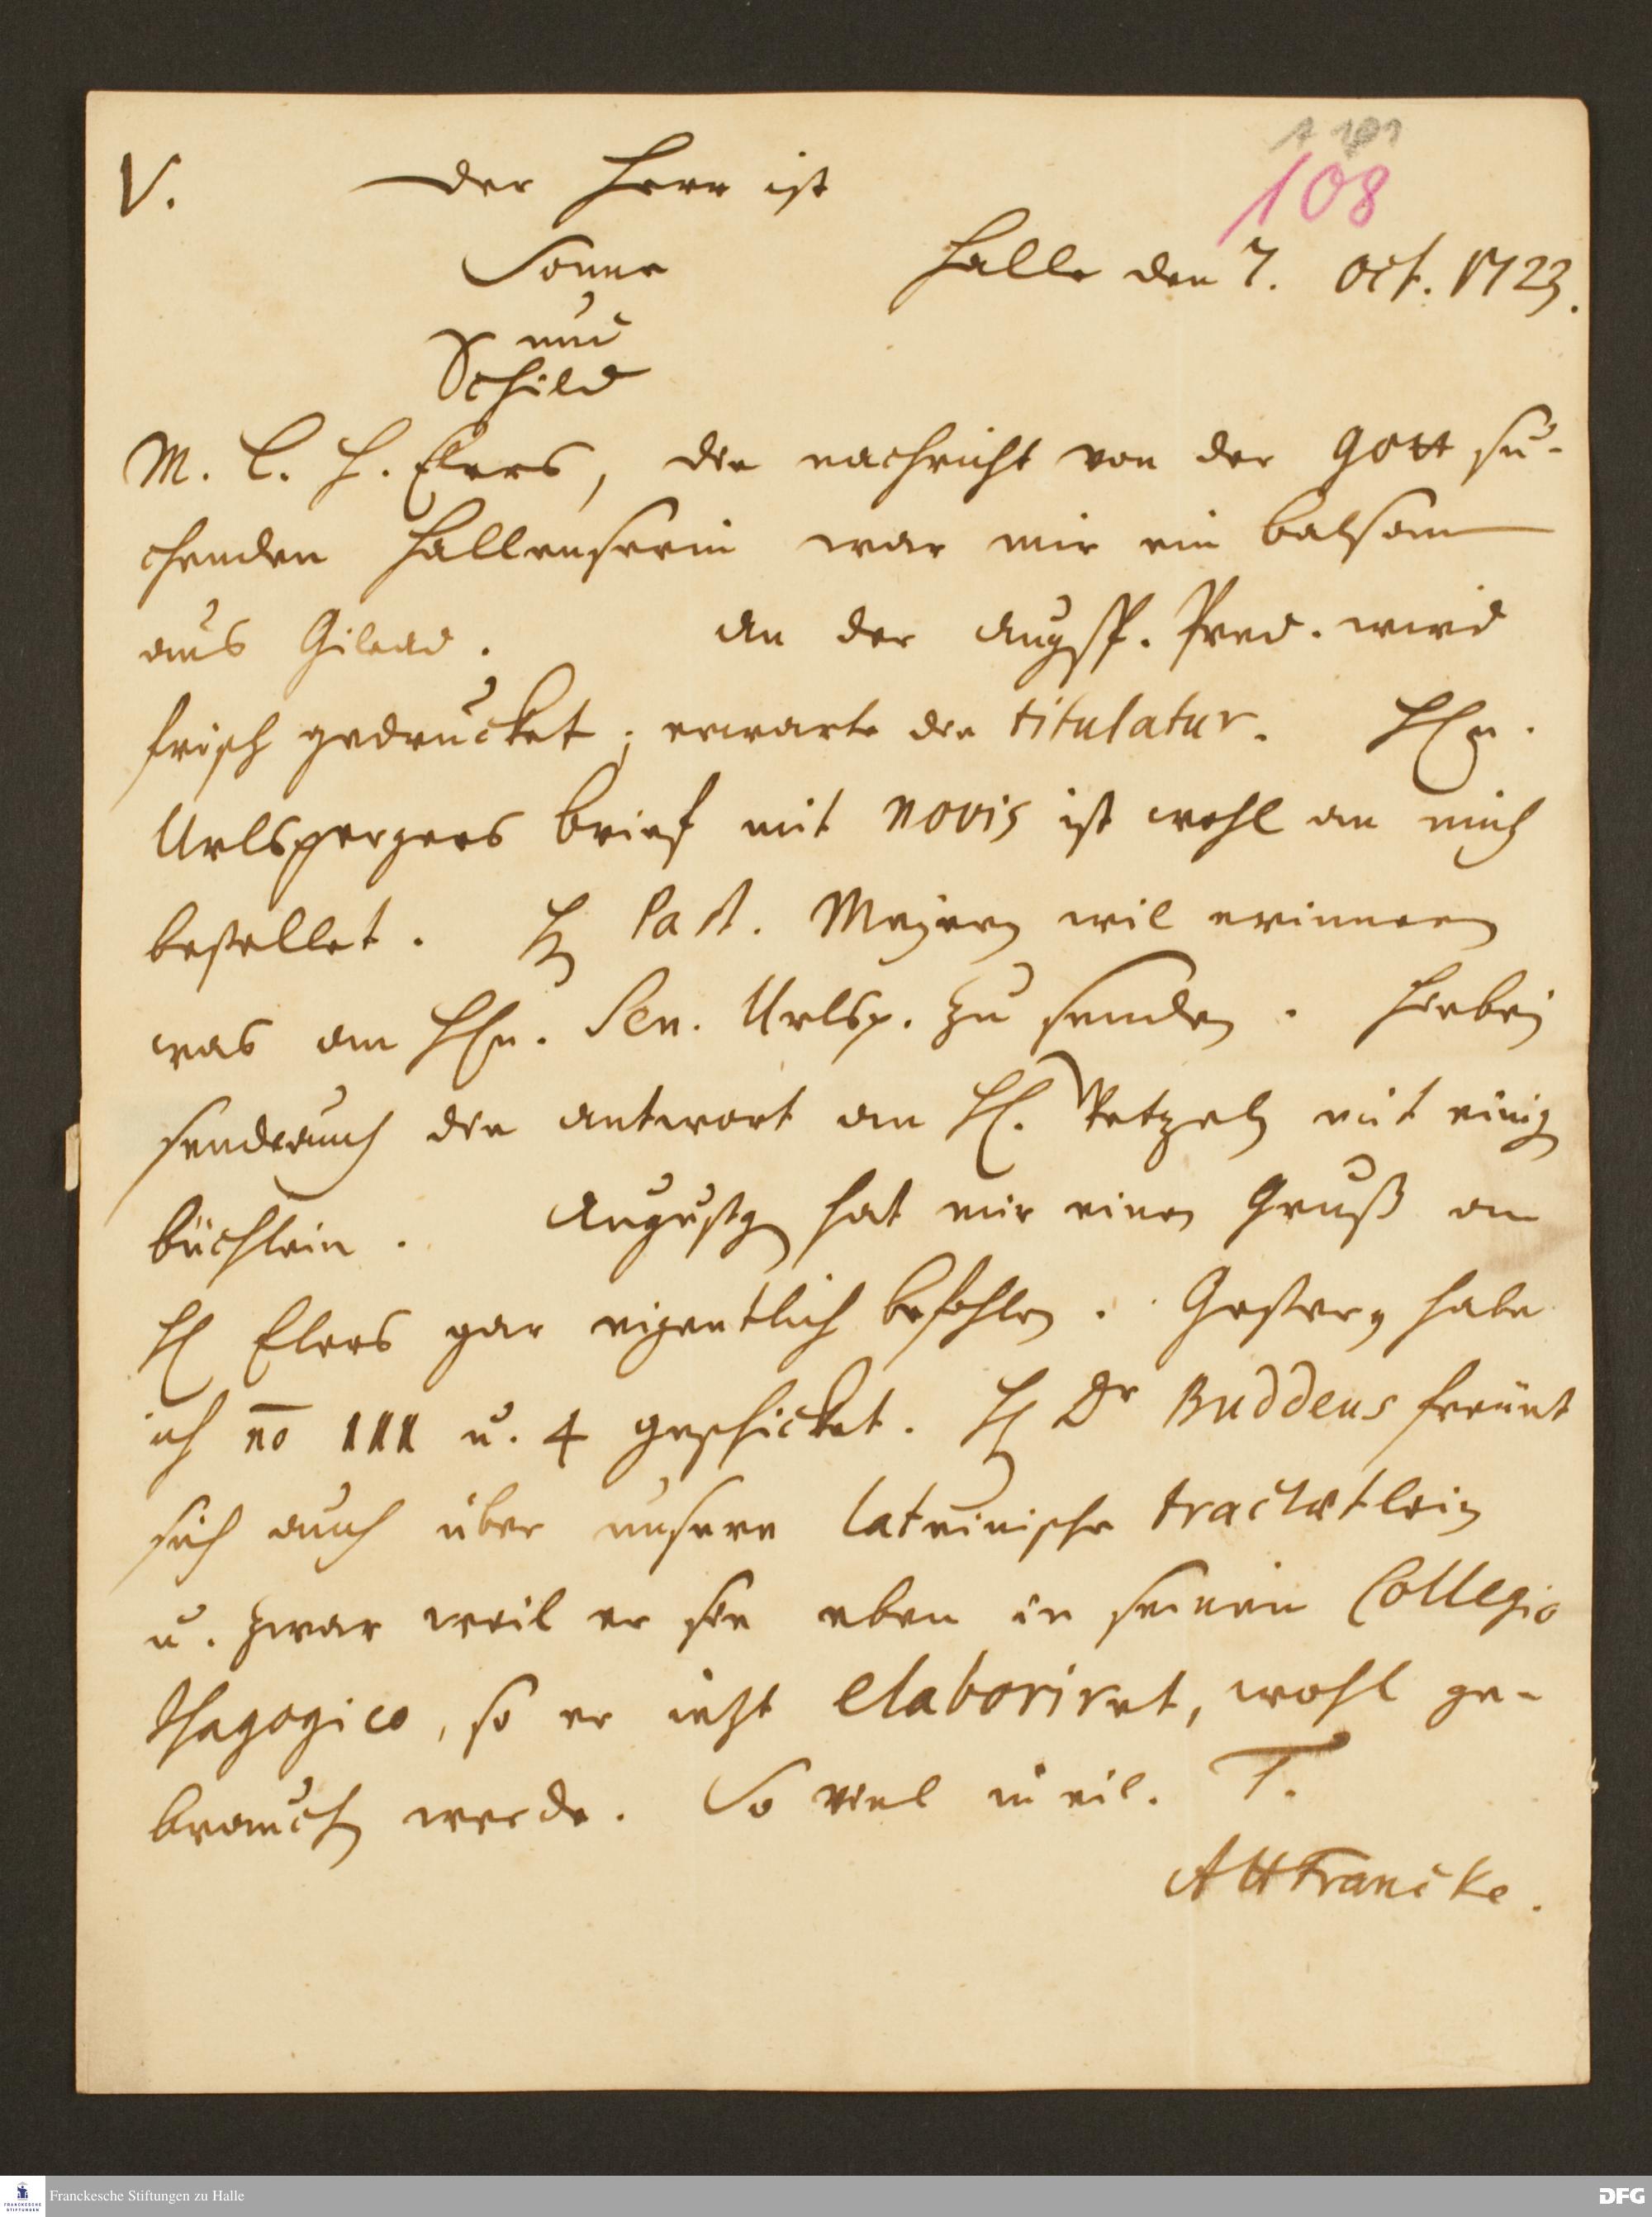 A 191
108
V. Der Herr ist
Sonne
und
Schild
Halle den 7. Oct. 1723.
M. l. H. Elers, die nachricht von der Gott su-
chenden Hallenserin war mir ein balsam
aus Gilead. An der Augsp. Pred. wird
frisch gedrucket; erwarte die titulatur. HEn.
Urlspergers brief mit novis ist wohl an mich
bestellet. H Past. Mejern wil erinnern
was an HEn. Sen. Urlsp. zu senden. Hiebej
sende auch die antwort an H. Petzeln mit einig
büchlein. Augustg hat mir einen Gruß an
H Elers gar eigentlich befohlen. Gestern habe
ich no 111 u. 4 geschicket. H Dr Buddeus freüet
sich auch über unsere lateinische tractætlein
u. zwar weil er sie eben in seinem Collegio
Isagogico, so er ietzt elaboriret, wohl ge-
brauchen werde. So viel in eil. T.
AHFrancke.
Franckesche Stiftungen zu Halle
DFG